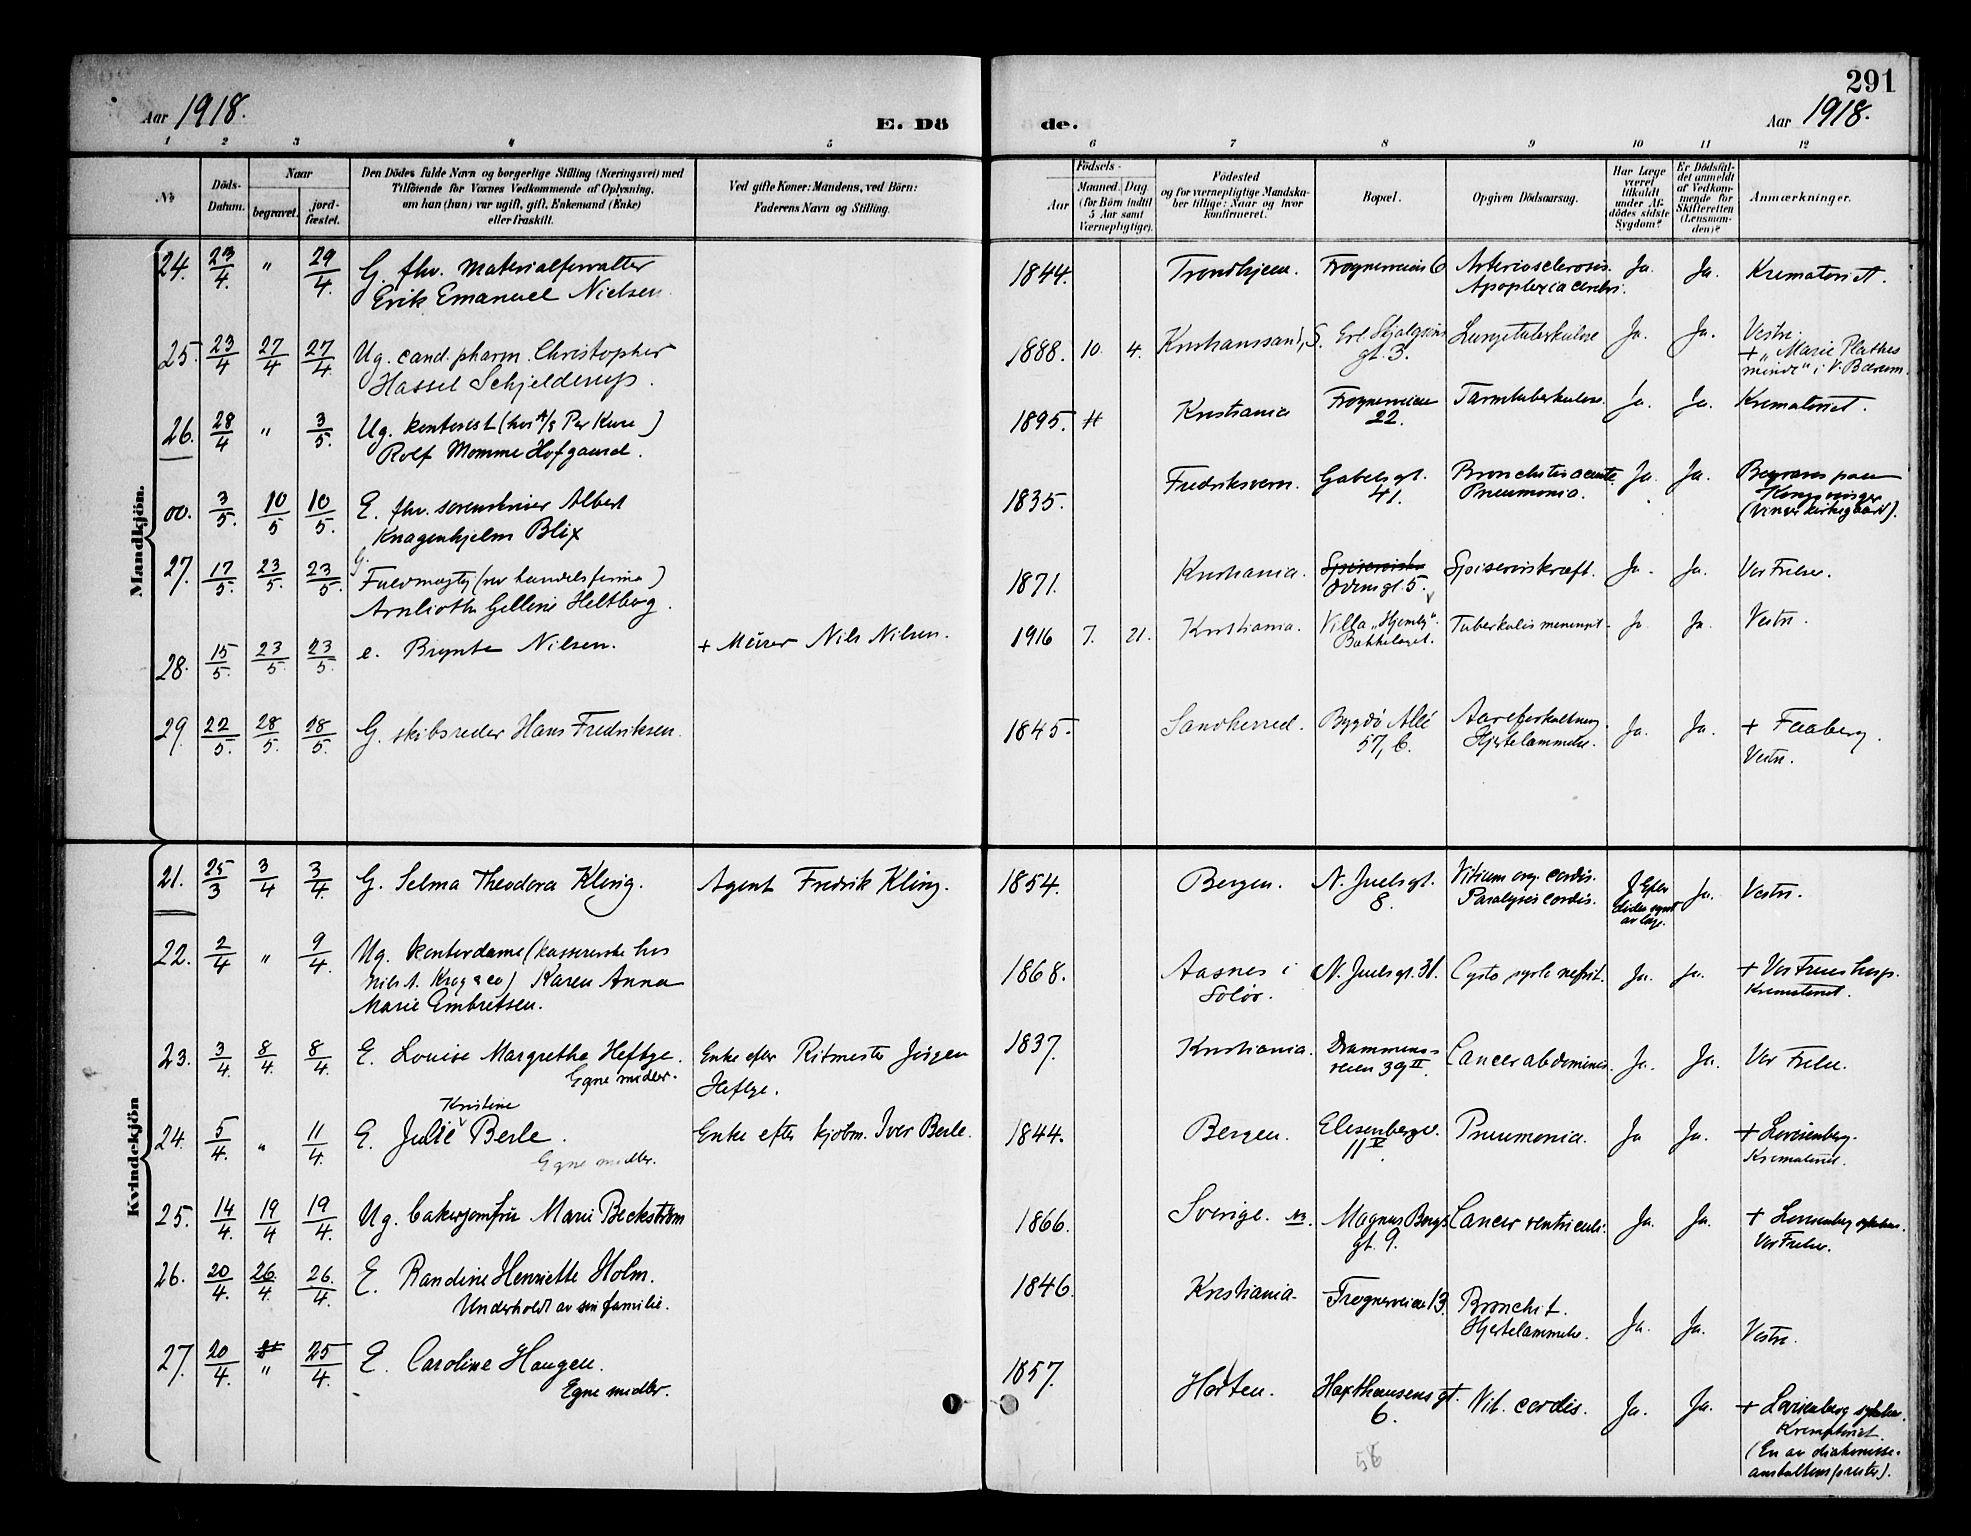 291
Aar 1918.
E. Dö
de.
Aar 1918.
1 2 3 4 5 6 7 8 9 10 11 12
No
Döds-
Datum.
Naar
begravet.
jord-
fæstet.
Den Dödes fulde Navn og borgerlige Stilling (Næringsvei) med
Tilföiende for Voxnes Vedkommende af Oplysning,
om han (hun) var ugift, gift, Enkemand (Enke)
eller fraskilt.
Ved gifte Koner: Mandens, ved Börn:
Faderens Navn og Stilling.
Födsels-
Aar
Maaned. Dag.
(for Börn indtil
5 Aar samt
Værnepligtige).
Födested
og for værnepligtige Mandska-
ber tillige: Naar og hvor
konfirmeret.
Bopæl.
Opgiven Dödsaarsag.
Har Læge
været
tilkaldt
under Af-
dødes sidste
Sygdom?
Er Dödsfal-
det anmeldt
af Vedkom-
mende for
Skifteretten
(Lensman-
den)?
Anmærkninger.
Mandkjön.
24. 23/4. " 29/4. G. fhv. materialforvalter
Erik Emanuel Nielsen.
1844. Trondhjem. Frognerveien 6 Arteriosclerosis.
Apoplexia cerebri. Ja. Ja. Krematoriet.
25. 23/4 27/4 27/4. Ug. cand. pharm. Christopher
Hassel Schjelderup.
1888. 10. 4. Kristianssand, S. Erl. Skjalgsøns
gt. 3. Lungetuberkulose Ja. Ja. Vestre.
+ "Marie Plathes
minde" i V. Bærum.
26. 28/4 " 3/5. Ug. kontorist (hos A/S Per Kure)
Rolf Momme Hofgaard.
1895. 4 Kristiania Frognerveien
22. Tarmtuberkulose. Ja. Ja. Krematoriet.
00. 3/5. 10/5 10/5. E. fhv. sorenskriver Albert
Knagenhjelm Blix
1835. Fredriksvern. Gabels gt.
41. Bronchitis acuta.
Pneumonia. Ja. Ja. Begraves paa
Kongsvinger
(Vinger kirkegaard).
27. 17/5. 23/5. 23/5. G.
Fuldmægtig (ved handelsfirma)
Arnlioth Gelline Heltberg.
1871. Kristiania. Odinsgt. 5. Spiserørskræft. Ja. Ja. Vor Frelser.
28. 15/5. 23/5. 23/5. e. Brynte Nilsen. + Murer Nils Nilsen.
1916 7. 21. Kristiania. Villa "Hjemly".
Bækkelaget. Tuberkuløs meningit. Ja. Ja. Vestre.
29. 22/5. 28/5. 28/5. G. skibsreder Hans Fredriksen.
1845. Sandherred. Bygdø Allé
57, b. Aareforkalkning
Hjertelammelse. Ja. Ja. + Faaberg.
Vestre.
Kvindekjön
21. 25/3 3/4 3/4. G. Selma Theodora Kling. Agent Fredrik Kling.
1854. Bergen. N. Juels gt.
8. Vitium org. cordis.
Paralysis cordis. J Efter
døden synet
av læge. Ja. Vestre.
22. 2/4 " 9/4. Ug. kontordame (kassererske hos
Nils A. Krog & co) Karen Anna
Marie Embretsen.
1868. Aasnes i
Solør. N. Juels gt. 31. Cysto pyelo nefrit. Ja. Ja. + Vor Frues hosp.
Krematoriet.
23. 3/4 8/4 8/4. E. Louise Margrethe Heftye.
Egne midler.
Enke efter Ritmester Jørgen
Heftye.
1837. Kristiania. Drammens-
veien 39 II. Cancer abdominis. Ja. Ja. Vor Frelser.
24. 5/4. " 11/4. Kristine
E. Julie Berle.
Egne midler.
Enke efter kjøbm. Iver Berle.
1844. Bergen. Elisenbergv.
11 V. Pneumonia. Ja Ja. + Lovisenberg.
Krematoriet.
25. 14/4. 19/4 19/4. Ug. bakerjomfru Marie Beckstrøm
1866. Sverige. Magnus Bergs
gt. 9. Cancer ventriculi. Ja. Ja. + Lovisenberg sykehus.
Vor Frelser.
26. 20/4. 26/4. 26/4. E. Randine Henriette Holm.
Underholdt av sin familie.
1846. Kristiania. Frognerveien 13. Bronchit.
Hjertelammelse. Ja. Ja. Vestre.
27. 20/4. " 25/4. E. Caroline Haugen.
Egne midler.
1857. Horten. Haxthausens gt.
6. Vit. cordis. Ja. Ja. + Lovisenberg sykehus.
Krematoriet.
(En av diakonisse-
anstaltens prester).
56